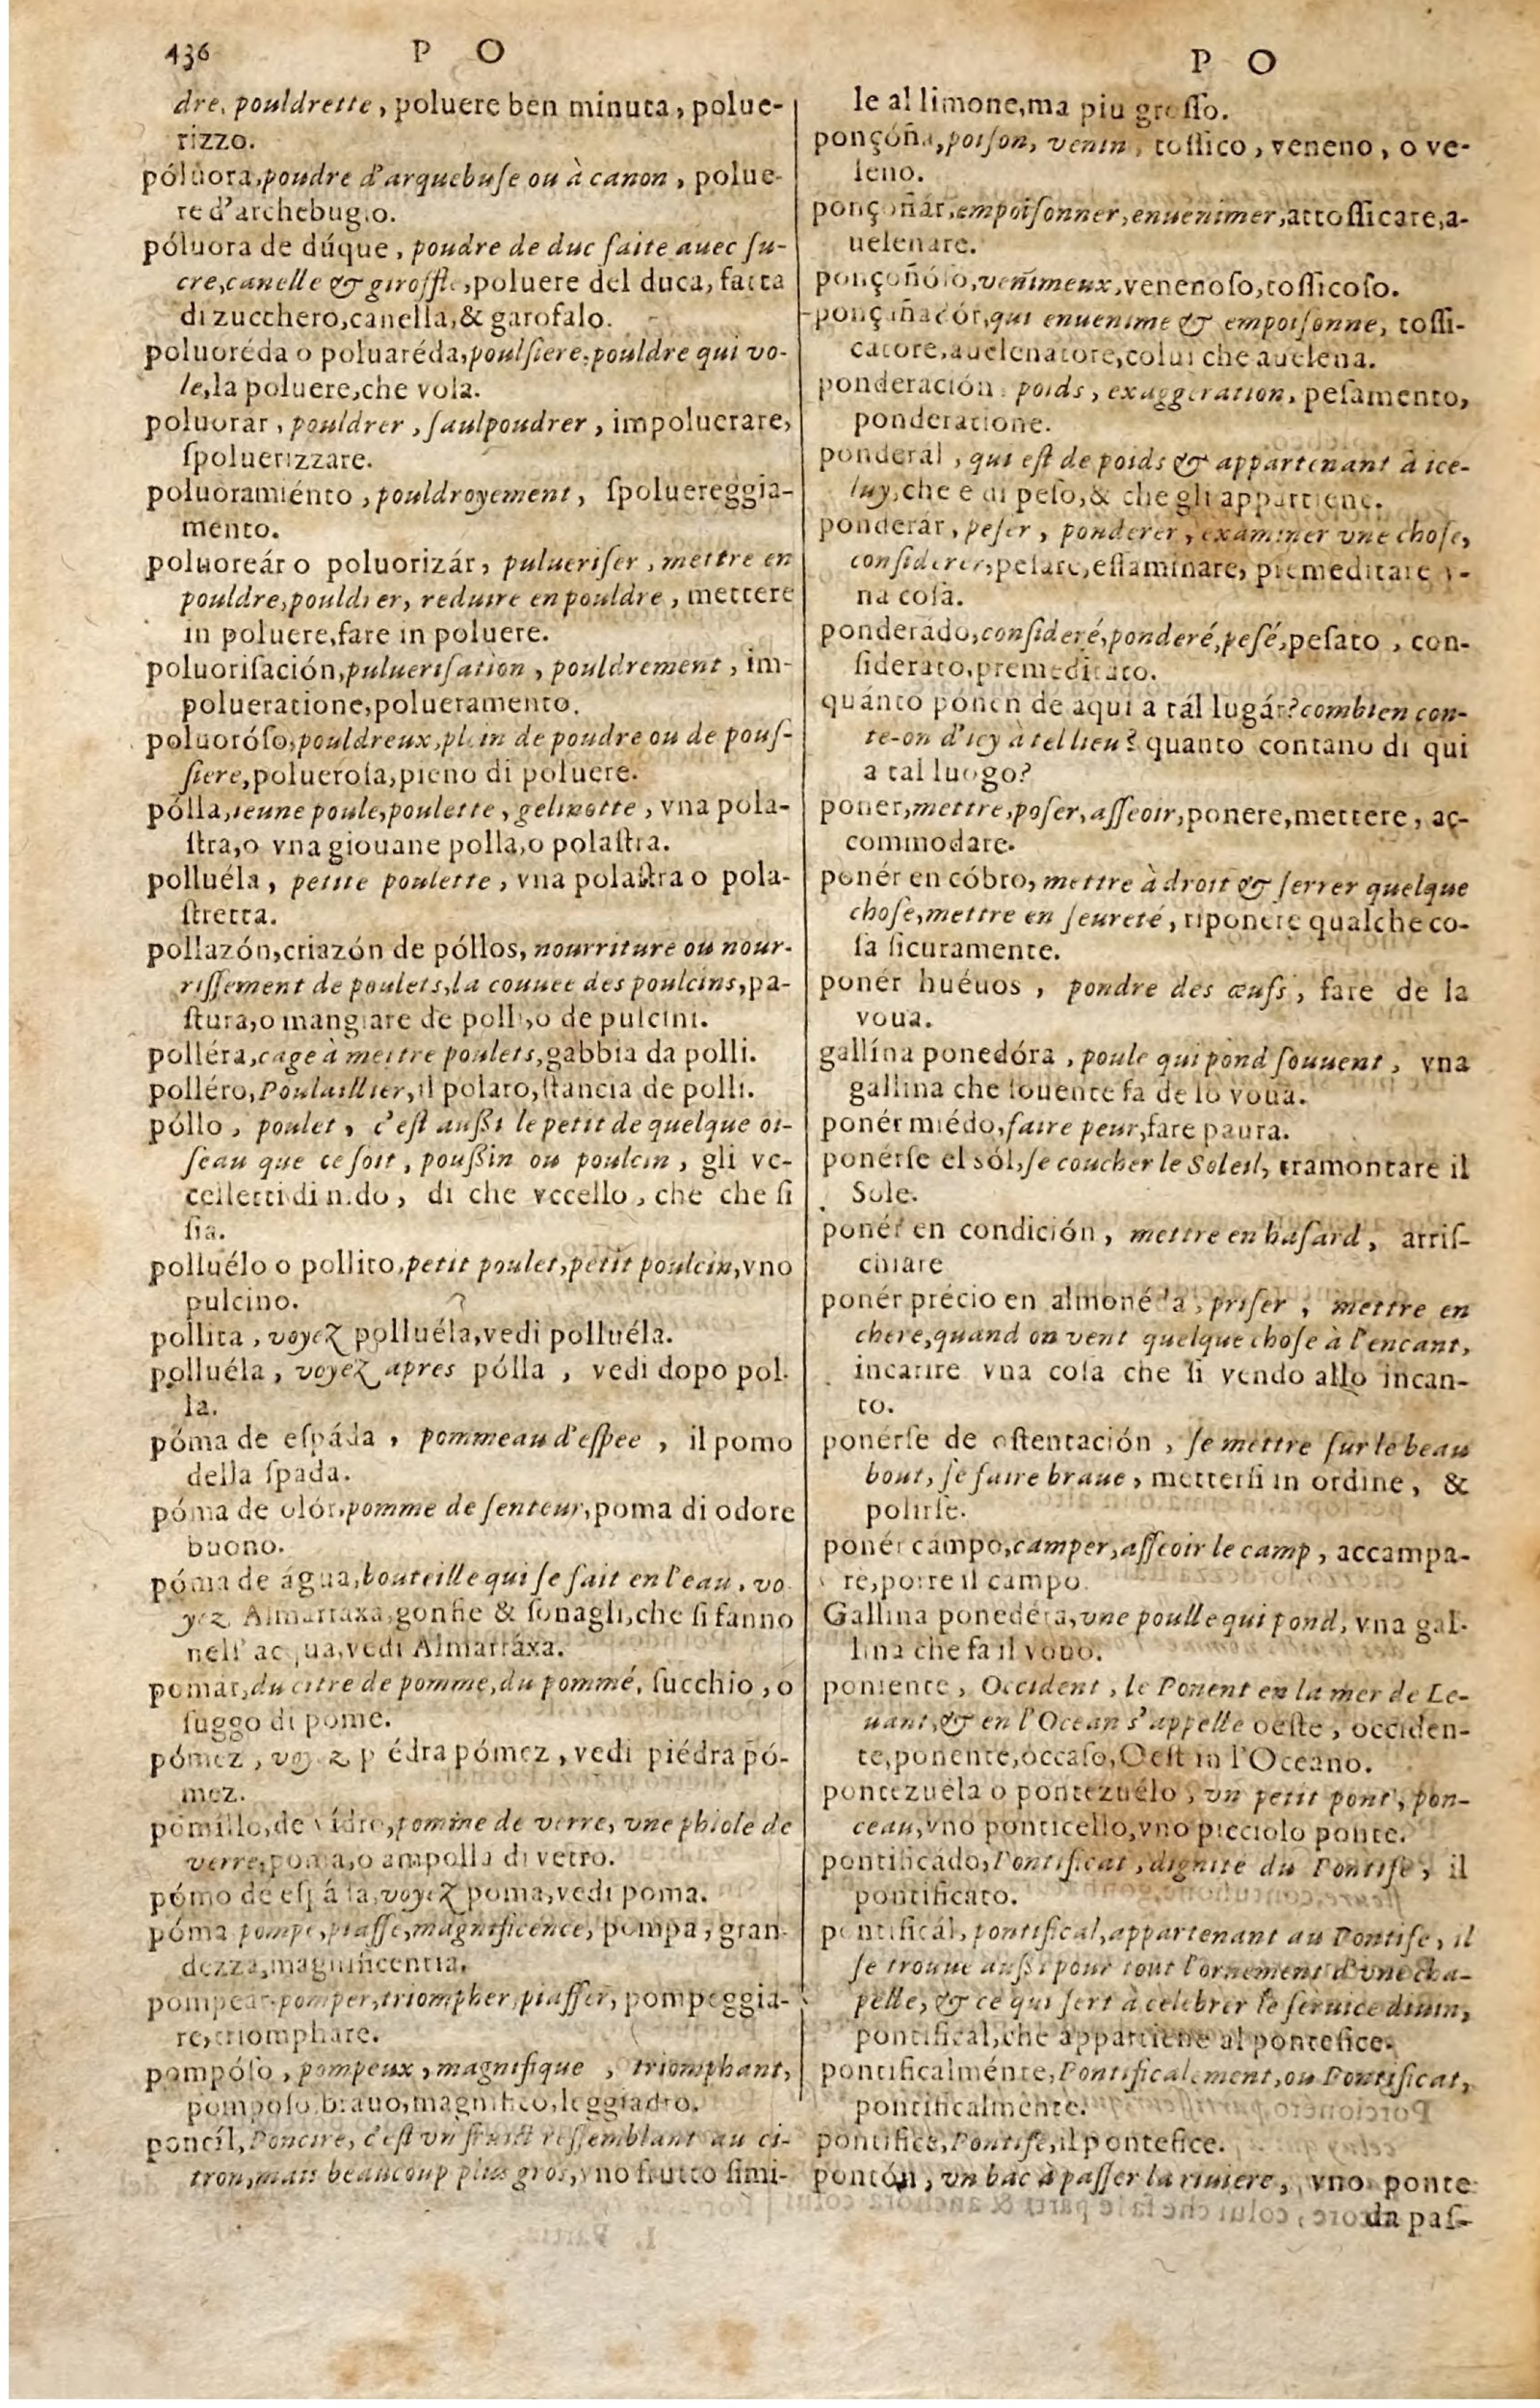 436 P O
dre, pouldrette, poluere ben minuta, polue-
rizzo.
póluora, poudre d'arquebuſe ou à canon, polue-
re d'archebugio.
póluora de dúque, poudre de duc faite auec ſu-
cre, canelle & giroffle, poluere del duca, fatta
di zucchero, canella, & garofalo.
poluoréda o poluaréda, poulſiere, pouldre qui vo-
le, la poluere, che vola.
poluorar, pouldrer, ſaulpoudrer, impoluerare,
ſpoluerizzare.
poluoramiénto, pouldroyement, ſpoluereggia-
mento.
poluoreár o poluorizár, pulueriſer, mettre en
pouldre, pouldrer, reduire en pouldre, mettere
in poluere, fare in poluere.
poluoriſación, pulueriſation, pouldrement, im-
polueratione, polueramento.
poluoróſo, pouldreux, plein de poudre ou de pouſ-
ſiere, polueroſa, pieno di poluere.
pólla, ieune poule, poulette, gelinotte, vna pola-
ſtra, o vna giouane polla, o polaſtra.
polluéla, petite poulette, vna polaſtra o pola-
ſtretta.
pollazón, criazón de póllos, nourriture ou nour-
riſſement de poulets, la couuee des poulcins, pa-
ſtura, o mangiare de polli, o de pulcini.
polléra, cage à mettre poulets, gabbia da polli.
polléro, Poulaillier, il polaro, ſtancia de polli.
póllo, poulet, c'eſt auſſi le petit de quelque oi-
ſeau que ce ſoit, pouſſin ou poulcin, gli vc-
celletti di nido, di che vccello, che che ſi
ſia.
polluélo o pollito, petit poulet, petit poulcin, vno
pulcino.
pollita, voyez polluéla, vedi polluéla.
polluéla, voyez apres pólla, vedi dopo pol-
la.
póma de eſpáda, pommeau d'eſpee, il pomo
della ſpada.
póma de olór, pomme de ſenteur, poma di odore
buono.
póma de água, bouteille qui ſe fait en l'eau, vo-
yez Almarraxa, gonfie & ſonagli, che ſi fanno
nell' acqua, vedi Almarráxa.
pomar, du citre de pomme, du pommé, ſucchio, o
ſuggo di pome.
pómez, voyez piédra pómez, vedi piédra pó-
mez.
pomillo, de vídro, pomme de verre, vne phiole de
verre, poma, o ampolla di vetro.
pómo de eſpáda, voyez poma, vedi poma.
póma pompe, piaffe, magnificence, pompa, gran-
dezza, magnificentia.
pompear pomper, triompher, piaffer, pompeggia-
re, triomphare.
pompóſo, pompeux, magnifique, triomphant,
pompoſo, brauo, magnifico, leggiadro.
poncíl, Poncire, c'eſt vn fruict reſſemblant au ci-
tron, mais beaucoup plus gros, vno frutto ſimi-
P O
le al limone, ma piu groſſo.
ponçóña, poiſon, venin, toſſico, veneno, o ve-
leno.
ponçoñár, empoiſonner, enuenimer, attoſſicare, a-
uelenare.
ponçoñóſo, venimeux, venenoſo, toſſicoſo.
ponçiñadór, qui enuenime & empoiſonne, toſſi-
catore, auelenatore, colui che auelena.
ponderación, poids, exaggeration, peſamento,
ponderatione.
ponderál, qui eſt de poids & appartenant à ice-
luy, che e di peſo, & che gli appartiene.
ponderár, peſer, ponderer, examiner vne choſe,
conſiderer, peſare, eſſaminare, premeditare v-
na coſa.
ponderádo, conſideré, ponderé, peſé, peſato, con-
ſiderato, premeditato.
quánto pónen de aqui a tál lugár? combien con-
te-on d'icy à tel lieu? quanto contano di qui
a tal luogo?
poner, mettre, poſer, aſſeoir, ponere, mettere, ac-
commodare.
ponér en cóbro, mettre à droit & ſerrer quelque
choſe, mettre en ſeureté, riponere qualche co-
ſa ſicuramente.
ponér huéuos, pondre des œufs, fare de la
voua.
gallína ponedóra, poule qui pond ſouuent, vna
gallina che ſouente fa de lo voua.
ponér miédo, faire peur, fare paura.
ponérſe el ſól, ſe coucher le Soleil, tramontare il
Sole.
ponér en condición, mettre en haſard, arriſ-
chiare
ponér précio en almonéda, priſer, mettre en
chere, quand on vent quelque choſe à l'encant,
incarire vna coſa che ſi vendo allo incan-
to.
ponérſe de oſtentación, ſe mettre ſur le beau
bout, ſe faire braue, metterſi in ordine, &
polirſe.
ponér cámpo, camper, aſſeoir le camp, accampa-
re, porre il campo.
Gallina ponedéra, vne poulle qui pond, vna gal-
lina che fa il vouo.
poniente, Occident, le Ponent en la mer de Le-
uant, & en l'Ocean s'appelle oeſte, occiden-
te, ponente, occaſo, Oeſt in l'Oceano.
pontezuéla o pontezuélo, vn petit pont, pon-
ceau, vno ponticello, vno picciolo ponte.
pontificádo, Pontificat, dignité du Pontife, il
pontificato.
pontificál, pontifical, appartenant au Pontife, il
ſe trouue auſſi pour tout l'ornement d'vne cha-
pelle, & ce qui ſert à celebrer le ſeruice diuin,
pontifical, che appartiene al pontefice.
pontificalménte, Pontificalement, ou Pontificat,
pontificalmente.
pontifice, Pontife, il pontefice.
pontón, vn bac à paſſer la riuiere, vno ponte
da paſ-